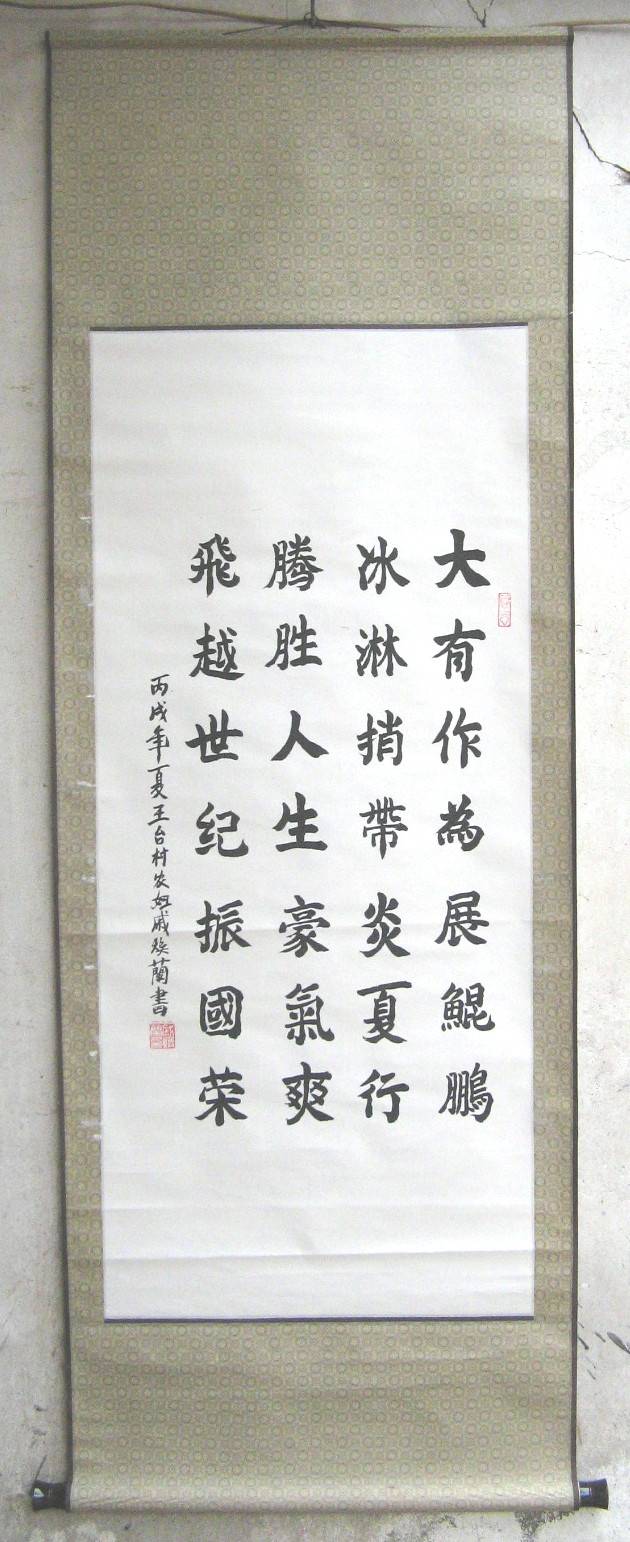 大有作為展鯤鵬
冰淋捎帶炎夏行
腾胜人生豪氣爽
飛越世纪振國荣
丙戌年夏王台村农奴戚焕蘭書